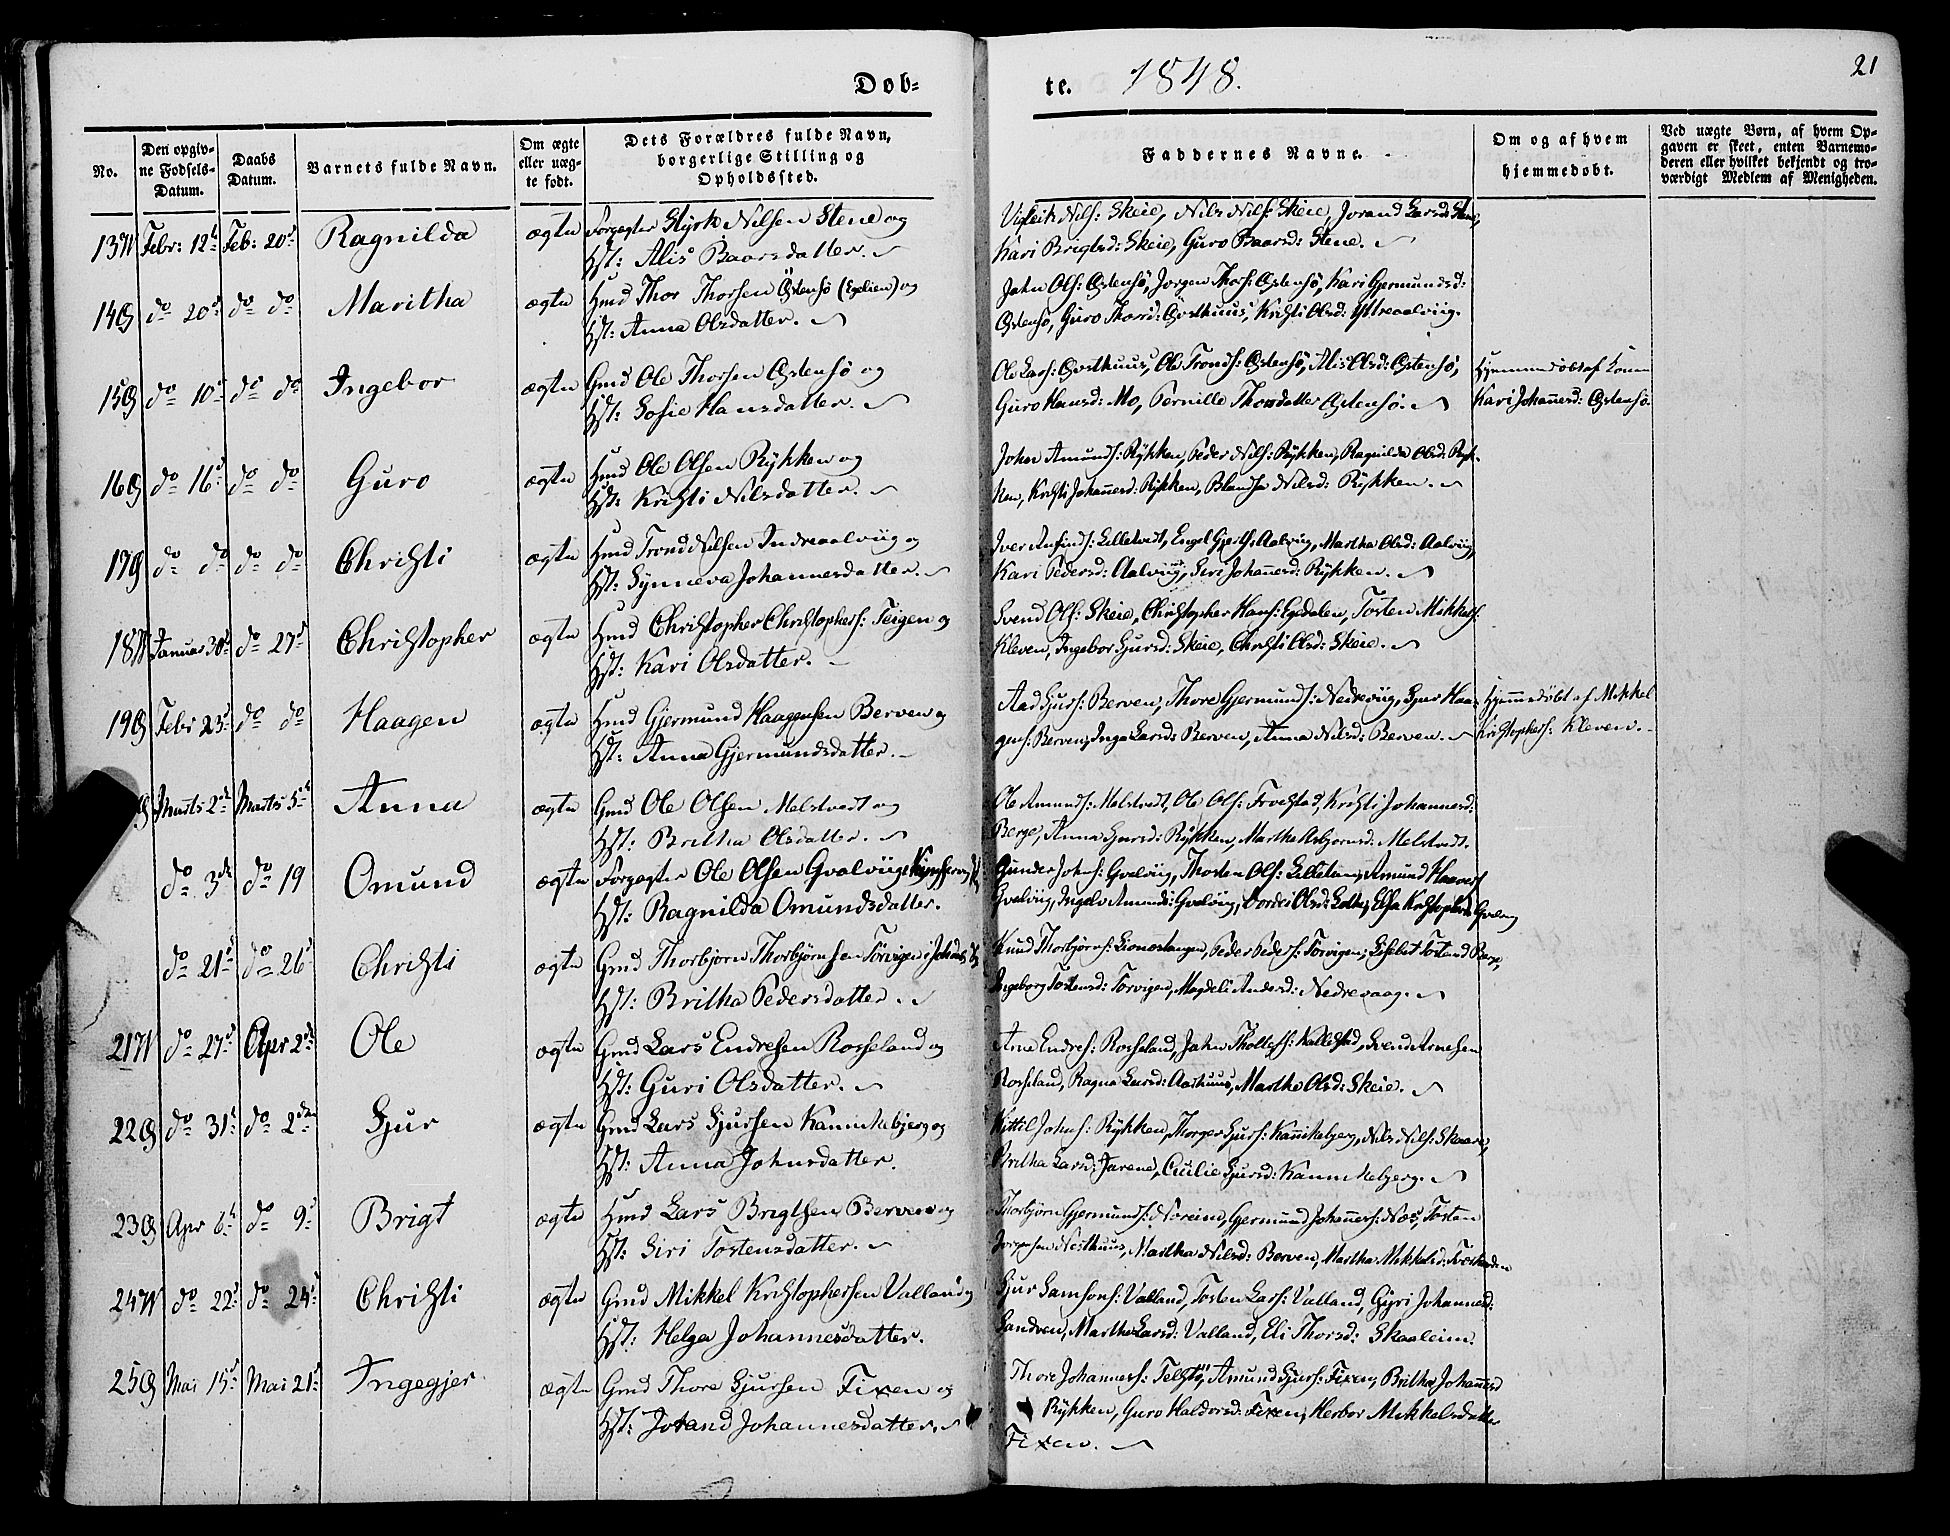 Døb=
te. 1848.
21
No.
Den opgiv=
ne Fødsels=
Datum.
Daabs
Datum.
Barnets fulde Navn.
Om ægte
eller uæg=
te født.
Dets Forældres fulde Navn,
borgerlige Stilling og
Opholdssted.
Faddernes Navne.
Om og af hvem
hjemmedøbt.
Ved uægte Børn, af hvem Op=
gaven er skeet, enten Barnemo=
deren eller hvilket bekjendt og tro=
værdigt Medlem af Menigheden.
13 Febr: 12 Feb: 20 Ragnilda ægte Forpagter Styrk Nilsen Stene og
Hst: Alis Baarsdatter.
Vigleik Nils: Skeie, Nils Nils: Skeie, Jorand Larsd: Stene,
Kari Brigtsd: Skeie, Guro Baarsd: Stene.
14 do 20 do do Maritha ægte Hmd Thor Thorsen Østensö (Egelien) og
Hst: Anna Olsdatter.
John Ols: Østensö, Jørgen Thors: Østensö, Kari Gjermundsd:
Østensö, Guro Thorsd: Östhuus, Kristi Olsd: Yttreaalviig.
15 do 10 do do Ingebor ægte Gmd Ole Thorsen Østensö og
Hst: Sofie Hansdatter.
Ole Lars: Østhuus, Ole Tronds: Østensö, Alis Olsd: Østensö,
Guro Hansd: Mo, Pernille Thorsdatter Østensö.
Hjemmedöbt af Konen
Kari Johannesd: Østensö.
16 do 16 do do Guro ægte Hmd Ole Olsen Rykken og
Hst: Kristi Nilsdatter.
John Amunds: Rykken, Peder Nils: Rykken, Ragnilda Olsd: Ryk-
ken, Kristi Johannesd: Rykken, Nilsd: Rykken.
17 do do do do Christi ægte Hmd Trond Nilsen Indreaalviig og
Hst: Synneva Johannesdatter.
Iver Anfinds: Lilletvedt, Engel Aalviig, Martha Olsd: Aalviig,
Kari Pedersd: Aalviig, Siri Johannesd: Rykken.
18 Januar 30 do 27 Christopher ægte Hmd Christopher Christophers: Teigen og
Hst: Kari Olsdatter.
Svend Ols: Skeie, Christopher Hans: Egedalen, Tosten Mikkels:
Kleven, Ingebor Sjursd: Skeie, Christi Olsd: Skeie.
19 Febr 23 do do Haagen ægte Hmd Gjermund Haagensen Berven og
Hst: Anna Gjermundsdatter.
Aad Sjurs: Berven, Thore Gjermunds: Nedreviig, Sjur Haa-
gens: Berven, Inga Larsd: Berven, Anna Nilsd: Berven.
Hjemmedöbt af Mikkel
Kristophers: Kleven.
Marts 2 Marts 5 Anna ægte Gmd Ole Olsen Melstvedt og
Hst: Britha Olsdatter.
Ole Amunds: Melstvedt, Ole Ols: Kristi Johannesd:
Berge, Anna Sjursd: Rykken, Martha Melstvedt.
do 3 do 19 Omund ægte Forpagter Ole Olsen Gvalviig
Hst: Ragnilda Omundsdatter.
Gunder Johns: Gvalviig, Thosten Ols: Amund
Gvalviig, Amunds: Gvalviig, Olsd: Gvalviig
do 21 do 26 Christi ægte Gmd Thorbjørn Thorbjørnsen Törvigen
Hst: Britha Pedersdatter.
Knud Thorbjørns: Peder Peders: Törvigen, Berge,
Ingeborg Tostensd: Torvigen, Magdeli Andersd: Nedrevaag.
21 do 27 Apr 2 Ole ægte Gmd Lars Endresen Rosseland og
Hst: Guri Olsdatter.
Arne Endres: Rosseland, John Kallestad, Svend Arnesen
Rosseland, Ragna Larsd: Aarhuus, Martha Olsd: Skeie.
22 do 31 do 2 Sjur ægte Gmd Lars Sjursen Kannikebjerg og
Hst: Anna Johnsdatter.
Kittil Johns: Rykken, Thorger Sjurs: Kannikebjerg, Nils Nils: Skaare,
Britha Larsd: Cicilie Sjursd: Kannikebjerg.
23 Apr 6 do 9 Brigt ægte Hmd Lars Brigtsen Berven og
Hst: Siri Tostensdatter.
Thorbjörn Gjermunds: Noreim, Gjermund Johannes: Næs, Tosten
Jørgensen Nesthuus, Martha Nilsd: Berven, Martha Mikkelsd:
24 do 22 do 24 Christi ægte Gmd Mikkel Kristophersen Valland og
Hst: Helga Johannesdatter.
Sjur Samsons: Valland, Tosten Lars: Valland, Gyri Johannesd:
Sandven, Martha Larsd: Valland, Eli Thorsd: Skaaleim.
25 Mai 15 Mai 21 Ingegjer ægte Gmd Thore Sjursen Fixen og
Hst: Jorand Johannesdatter.
Thore Johannes: Amund Sjurs: Fixen, Britha Johannesd
Rykken, Guro Haldorsd: Fixen, Herbor Mikkelsdatter
Fixen.